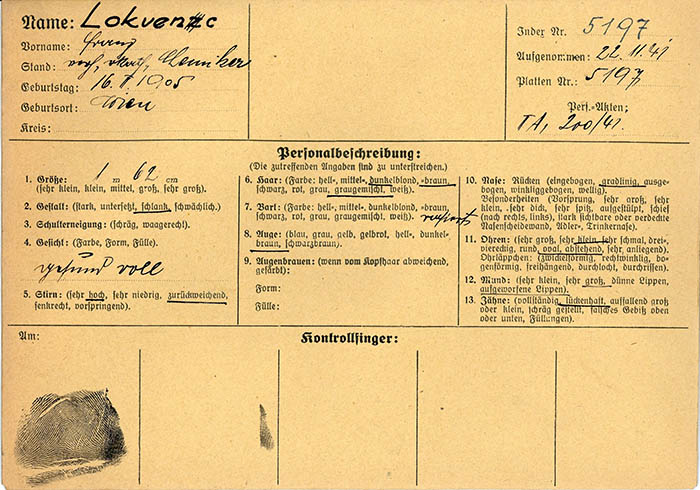 Name: Lokvenc
Vorname: Franz
Stand: verh, Chemiker
Geburtstag: 16. 1905
Geburtsort: Wien
Kreis:
Index Nr. 5197
Aufgenommen: 22.11.41
Platten Nr.: 5197
Pers.-Akten:
TA, 200/41.
Personalbeschreibung:
(Die zutreffenden Angaben sind zu unterstreichen.)
1. Größe: 1 m 62 cm
(sehr klein, klein, mittel, groß, sehr groß).
2. Gestalt: (stark, untersetzt, schlank, schwächlich.)
3. Schulterneigung: (schräg, waagerecht.)
4. Gesicht: (Farbe, Form, Fülle).
gesund voll
5. Stirn: (sehr hoch, sehr niedrig, zurückweichend,
senkrecht, vorspringend).
6. Haar: (Farbe: hell-, mittel-, dunkelblond, -braun,
schwarz, rot, grau, graugemischt, weiß).
7. Bart: (Farbe: hell-, mittel-, dunkelblond, -braun,
schwarz, rot, grau, graugemischt, weiß).
8. Auge: (blau, grau, gelb, gelbrot, hell-, dunkel-
braun, schwarzbraun).
9. Augenbrauen: (wenn vom Kopfhaar abweichend,
gefärbt):
Form:
Fülle:
10. Nase: Rücken (eingebogen, gradlinig, ausge-
bogen, winkliggebogen, wellig).
Besonderheiten (Vorsprung, sehr groß, sehr
klein, sehr dick, sehr spitz, aufgestülpt, schief
(nach rechts, links), stark sichtbare oder verdeckte
Nasenscheidewand, Adler-, Trinkernase).
11. Ohren: (sehr groß, sehr klein, sehr schmal, drei-,
viereckig, rund, oval, abstehend, sehr, anliegend).
Ohrläppchen: (zwickelförmig, rechtwinklig, bo-
genförmig, freihängend, durchlocht, durchrissen).
12. Mund: (sehr klein, sehr groß, dünne Lippen,
aufgeworfene Lippen).
13. Zähne: (vollständig, lückenhaft, auffallend groß
oder klein, schräg gestellt, falsches Gebiß oben
oder unten, Füllungen).
Am:
Kontrollfinger: